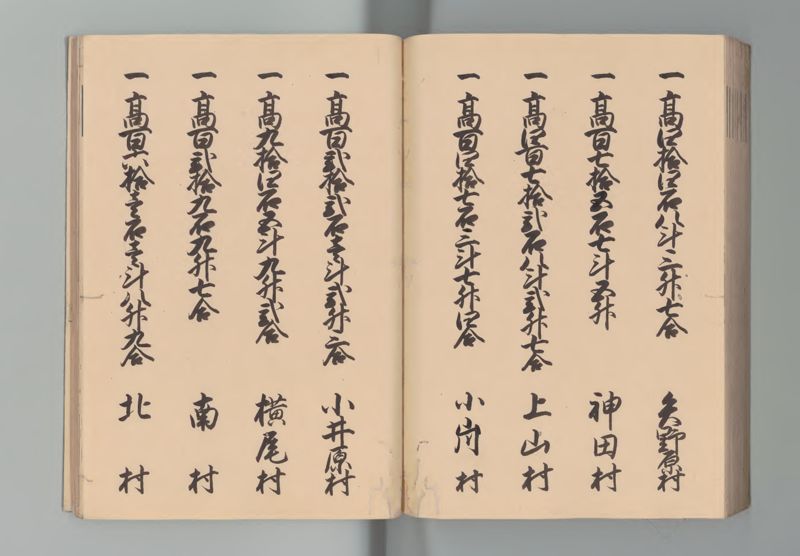 一 高四拾四石八斗六升七合 矢野原村
一 高百七拾五石七斗五升 神田村
一 高四百七拾弐石八斗弐升七合 上山村
一 高百四拾七石三斗七升四合 小岗村
一 高百弐拾弐石壱斗弐升六合 小井原村
一 高九拾四石五斗九升弐合 横尾村
一 高百弐拾九石九升七合 南村
一 高百六拾壱石壱斗八升九合 北村